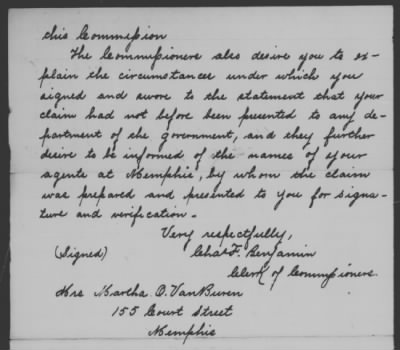 this Commission
The Commissioners also desire you to ex-
plain the circumstances under which you
signed and swore to the statement that your
claim had not before been presented to any de-
partment of the government, and they further
desire to be informed of the names of your
agents at Memphis, by whom the claim
was prepared and presented to you for signa-
ture and verification.
Very respectfully,
(Signed) Chas F. Benjamin
Clerk of Commissioners.
Mrs Martha O. VanBuren
155 Court Street
Memphis